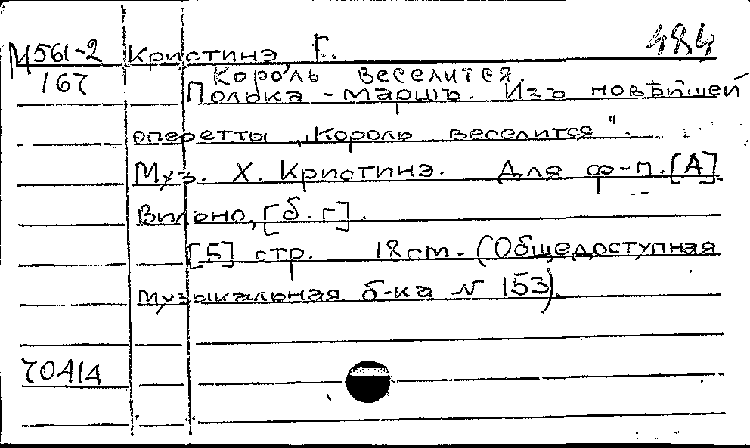 М561-2 Кристинэ, Г. 484
167 Король веселится
Полька-маршъ. Изъ новѣйшей
оперетты „Король веселится".
Муз. Х. Кристинэ. Для ф-п. [А]
Вильно, [б.г].
[5] стр. 18 cm. (Общедоступная
музыкальная б-ка N 153).
70414